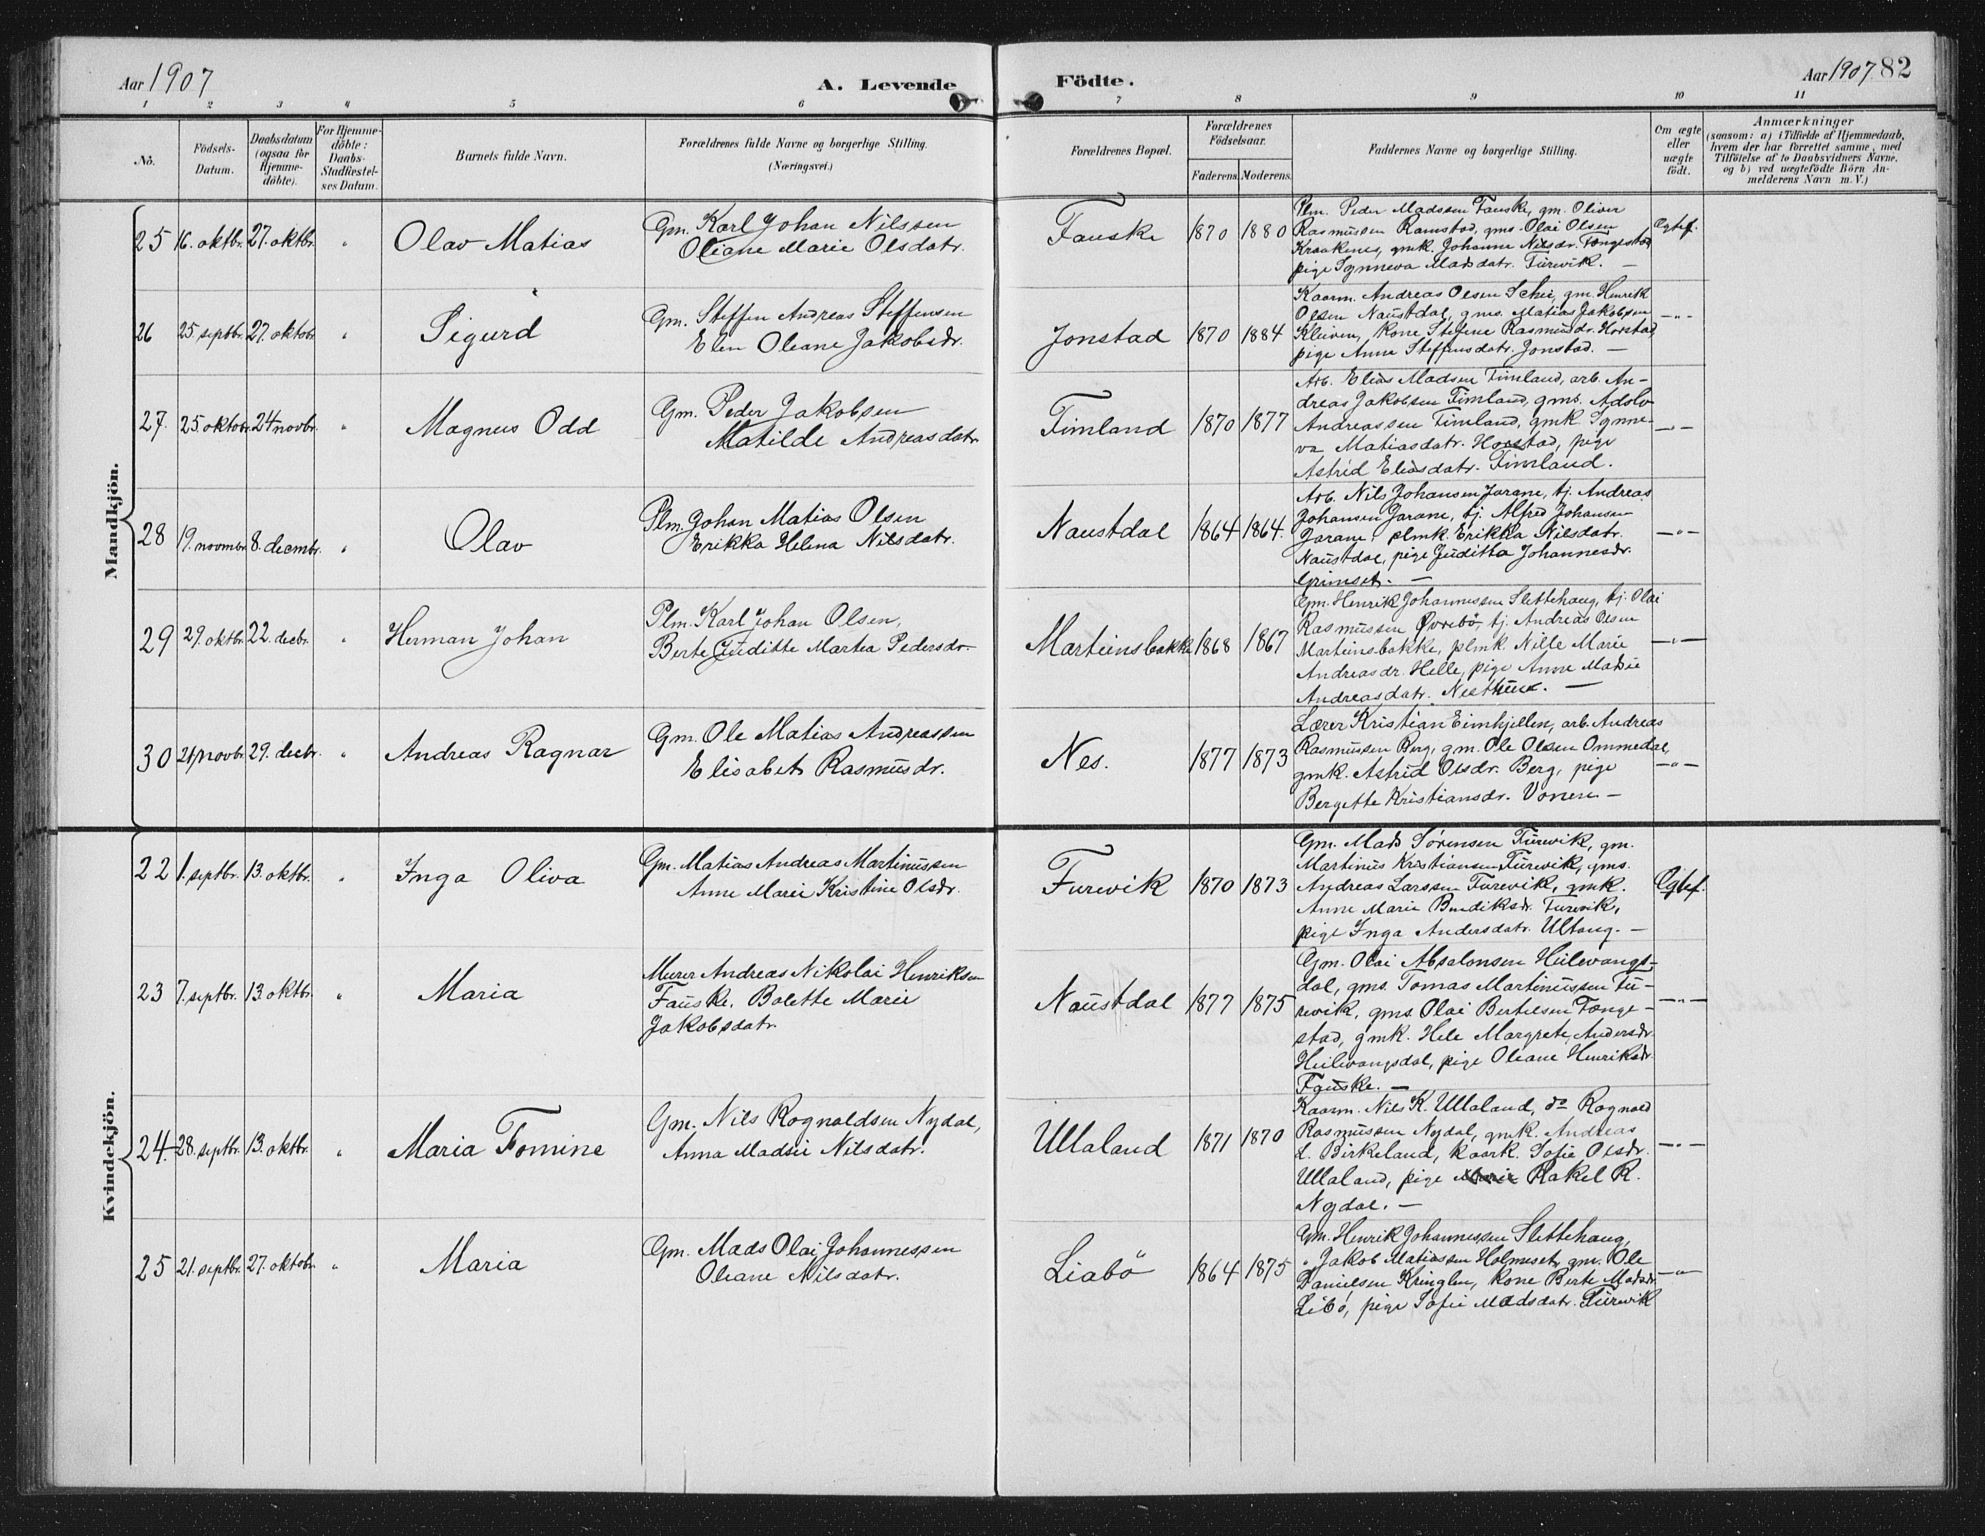 Aar 1907
A. Levende
Födte.
Aar 1907 82
1 2 3 4 5 6 7 8 9 10 11
No.
Födsels-
Datum.
Daabsdatum
(ogsaa for
Hjemme-
döbte).
For Hjemme-
döbte:
Daabs-
Stadfæstel-
ses Datum.
Barnets fulde Navn.
Forældrenes fulde Navne og borgerlige Stilling.
(Næringsvei.)
Forældrenes Bopæl.
Forældrenes
Födselsaar.
Faderens. Moderens.
Faddernes Navne og borgerlige Stilling.
Om ægte
eller
uægte
födt.
Anmærkninger
(saasom: a) i Tilfælde af Hjemmedaab,
hvem der har forrettet samme, med
Tilföielse af to Daabsvidners Navne,
og b) ved uægtefödte Börn An-
melderens Navn m. V.)
Mandkjön.
25 16. oktbr. 27. oktbr. " Olav Matias
Gm. Karl Johan Nilssen
Oliane Marie Olsdatr.
Fauske 1870 1880
Plm. Peder Madssen Fauske, gm. Oliver
Rasmussen Ramstad, gms. Olai Olsen
Kraakenes, gmk. Johanne Nilsdr. Tongestad
pige Synneva Madsdatr. Furevik. —
Egtef.
26 25. septbr. 27. oktobr. " Sigurd
Gm. Steffen Andreas Steffensen
Elen Oleane Jakobsdr.
Jonstad 1870 1884
Kaarm. Andreas Olsen Schei, gm. Henrik
Olsen Naustdal, gms. Matias Jakobsen
Kleiven, kone Stefine Rasmusdr. Horstad,
pige Anna Steffensdatr. Jonstad. —
—"—
27. 25. oktobr. 24 novbr. " Magnus Odd
Gm. Peder Jakobsen
Matilde Andreasdatr.
Timland 1870 1877
Arb. Elias Madsen Timland, arb. An-
dreas Jakobsen Timland, gms. Adolv
Andreassen Timland, gmk Synne-
va Matiasdatr. Horstad, pige
Astrid Eliasdatr. Timland.
—"—
28 19. novmbr. 8. decmbr. " Olav
Plm. Johan Matias Olsen
Erikka Helena Nilsdatr.
Naustdal 1864 1864.
Arb. Nils Johansen Jarane, tj. Andreas
Johansen Jarane, tj. Alfred Johansen
Jarane, plmk. Erikka Nilsdatr.
Naustdal, pige Juditta Johannesdr.
Grimset. —
—"—
29 29. oktbr. 22. decbr. " Herman Johan
Plm. Karl Johan Olsen,
Berte Juditte Martea Pedersdr.
Marteinsbakke 1868 1867
Gm. Henrik Johannessen Slettehaug, tj. Olai
Rasmussen Øvrebö, tj. Andreas Olsen
Marteinsbakke, plmk. Nille Marie
Andreasdr. Helle, pige Anne Madsie
Andreasdatr. —
—"—
30 21/novbr. 29. decbr. " Andreas Ragnar
Gm. Ole Matias Andreassen
Elisabet Rasmusdr.
Nes. 1877 1873
Lærer Kristian Eimhjellen, arb. Andreas
Rasmussen Berg, gm. Ole Olsen Ommedal,
gmk. Astrid Olsdr. Berg, pige
Bergette Kristiansdr. Vonen. —
—"—
Kvindekjön.
22 1. septbr. 13. oktbr. " Inga Oliva
Gm. Matias Andreas Martinussen
Anne Marie Kristine Olsdr.
Furevik 1870 1873
Gm. Mads Sörensen Furevik, gm.
Martinus Kristiansen Furevik, gms.
Andreas Larssen Furevik, gmk.
Anne Marie Bendiksdr. Furevik,
pige Inga Andersdatr. Ultang. —
Egtef.
23 7. septbr. 13. oktbr. " Maria
Murer Andreas Nikolai Henriksen
Fauske, Bolette Marie
Jakobsdatr.
Naustdal 1877 1875
Gm. Olai Absalonsen Heilevangs-
dal, gms. Tomas Martinussen Fu-
revik, gms. Olai Bertelsen Tonge-
stad, gmk. Hele Margrete Andersdr.
Heilevangsdal, pige Oleane Henriksdr.
Fauske. —
—"—
24. 28. septbr. 13. oktbr. " Maria Tomine
Gm. Nils Rognaldsen Nydal,
Anna Madsie Nilsdatr.
Ullaland 1871 1870
Kaarm. Nils K. Ullaland, do Rognald
Rasmussen Nydal, gmk. Andreas
L. Birkeland, kaark. Sofie Olsdr.
Ullaland, pige Rakel R.
Nydal. —
—"—
25 21. septbr. 27. oktobr. " Maria
Gm. Mads Olai Johannessen
Oleane Nilsdatr.
Liabö 1864 1875
Gm. Henrik Johannessen Slettehaug,
" Jakob Matiassen Holmeset, gm. Ole
Danielsen Kringlen, kone Berte Madsdr.
Libö, pige Sofie Madsdatr. Furevik
—"—